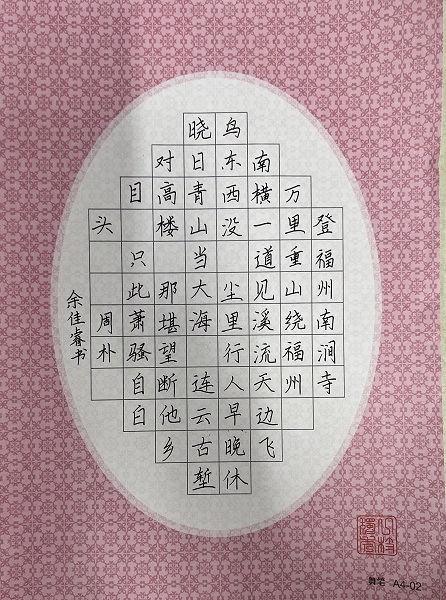 登福州南涧寺
万里重山绕福州
南横一道见溪流天边飞
鸟东西没 尘里行人早晚休
晓日青山当大海 连云古堑
对高楼 那堪望断他乡
目 只此萧骚自白
头 周朴
余佳睿书
舞笔 A4-02